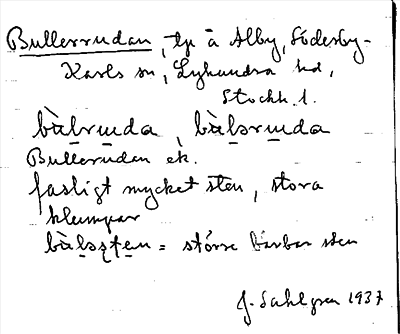 Bullerrudan, tp å Alby, Söderby-
Karls sn, Lyhundra hd,
Stockh. l.
bùlruda, bùlsruda
Bullerudan ek.
fasligt mycket sten, stora
klumpar
bùlsten = större bärbar sten
J. Sahlgren 1937